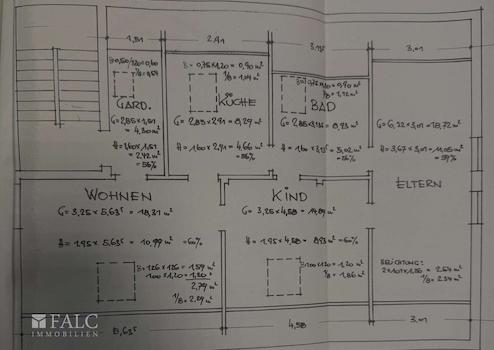 1,51
2,91
3,13⁵
3,01
B = 0,75×1,20 = 0,90 m²
GARD.
KÜCHE
BAD
G = 2,85×1,51
= 4,30 m²
G = 2,85×2,91 = 8,29 m²
G = 2,85×3,13⁵ = 8,93 m²
G = 6,22×3,01 = 18,72 m²
H = 1,60×1,51
= 2,42 m²
= 56%
H = 1,60×2,91 = 4,66 m²
= 56%
H = 1,60×3,13⁵ = 5,02 m²
= 56%
H = 3,67×3,01 = 11,05 m²
= 59%
WOHNEN
KIND
ELTERN
G = 3,25×5,63⁵ = 18,31 m²
G = 3,25×4,58 = 14,89 m²
H = 1.95 × 5.63⁵ = 10,99 m² = 60%
H = 1.95×4,58 = 8,93 m² = 60%
B = 1,26×1,26 = 1,59 m²
1,00×1,20 = 1,20
2,79 m²
1/8 = 2,29 m²
B = 1,00×1,20 = 1,20 m²
1/8 = 1,86 m²
BELICHTUNG:
2×1,01×1,26 = 2,54 m²
1/8 = 2.34 m²
FALC
IMMOBILIEN
5,63⁵
4,58
3,01